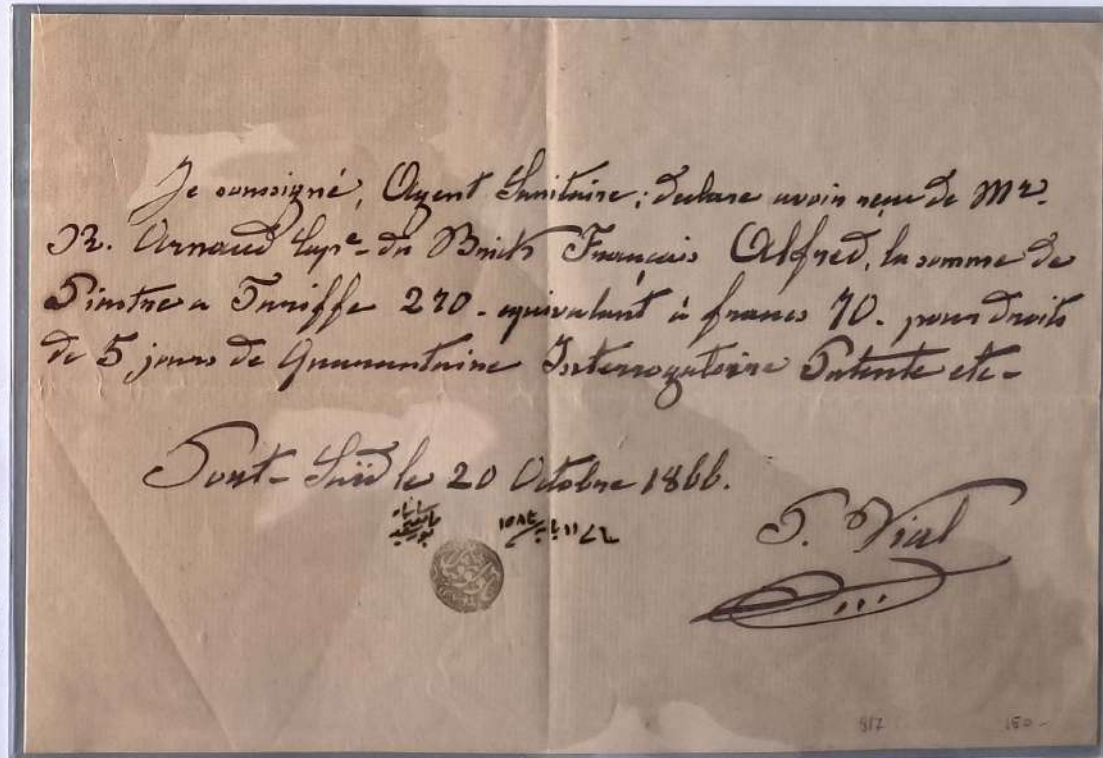 Je soussigné, Agent Sanitaire; declare avoir reçu de Mr.
R. Arnaud Cape. du Brick Français Alfred, la somme de
Piastre a Tariffe 270. equivalant à francs 70. pour droits
de 5 jours de Quarantaine Interrogatoire Patente etc-
Port-Saïd le 20 Octobre 1866.
P. Vial
817 150-